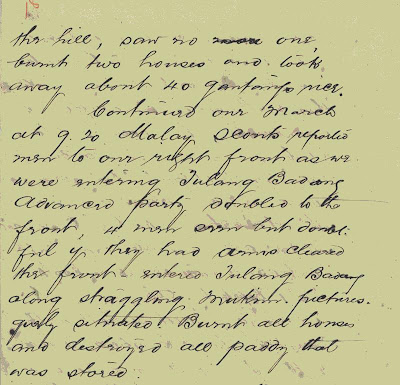 the hill, saw no one,
burnt two houses and took
away about 40 gantangs rice.
Continued our march
at 9.20 Malay Scouts reported
men to our right front as we
were entering Tulang Badang
Advanced party doubled to the
front, 4 men seen but doubt-
ful if they had arms cleared
the front & entered Tulang Badang
along straggling mukim. pictures-
quely situated. Burnt all houses
and destroyed all paddy that
was stored.